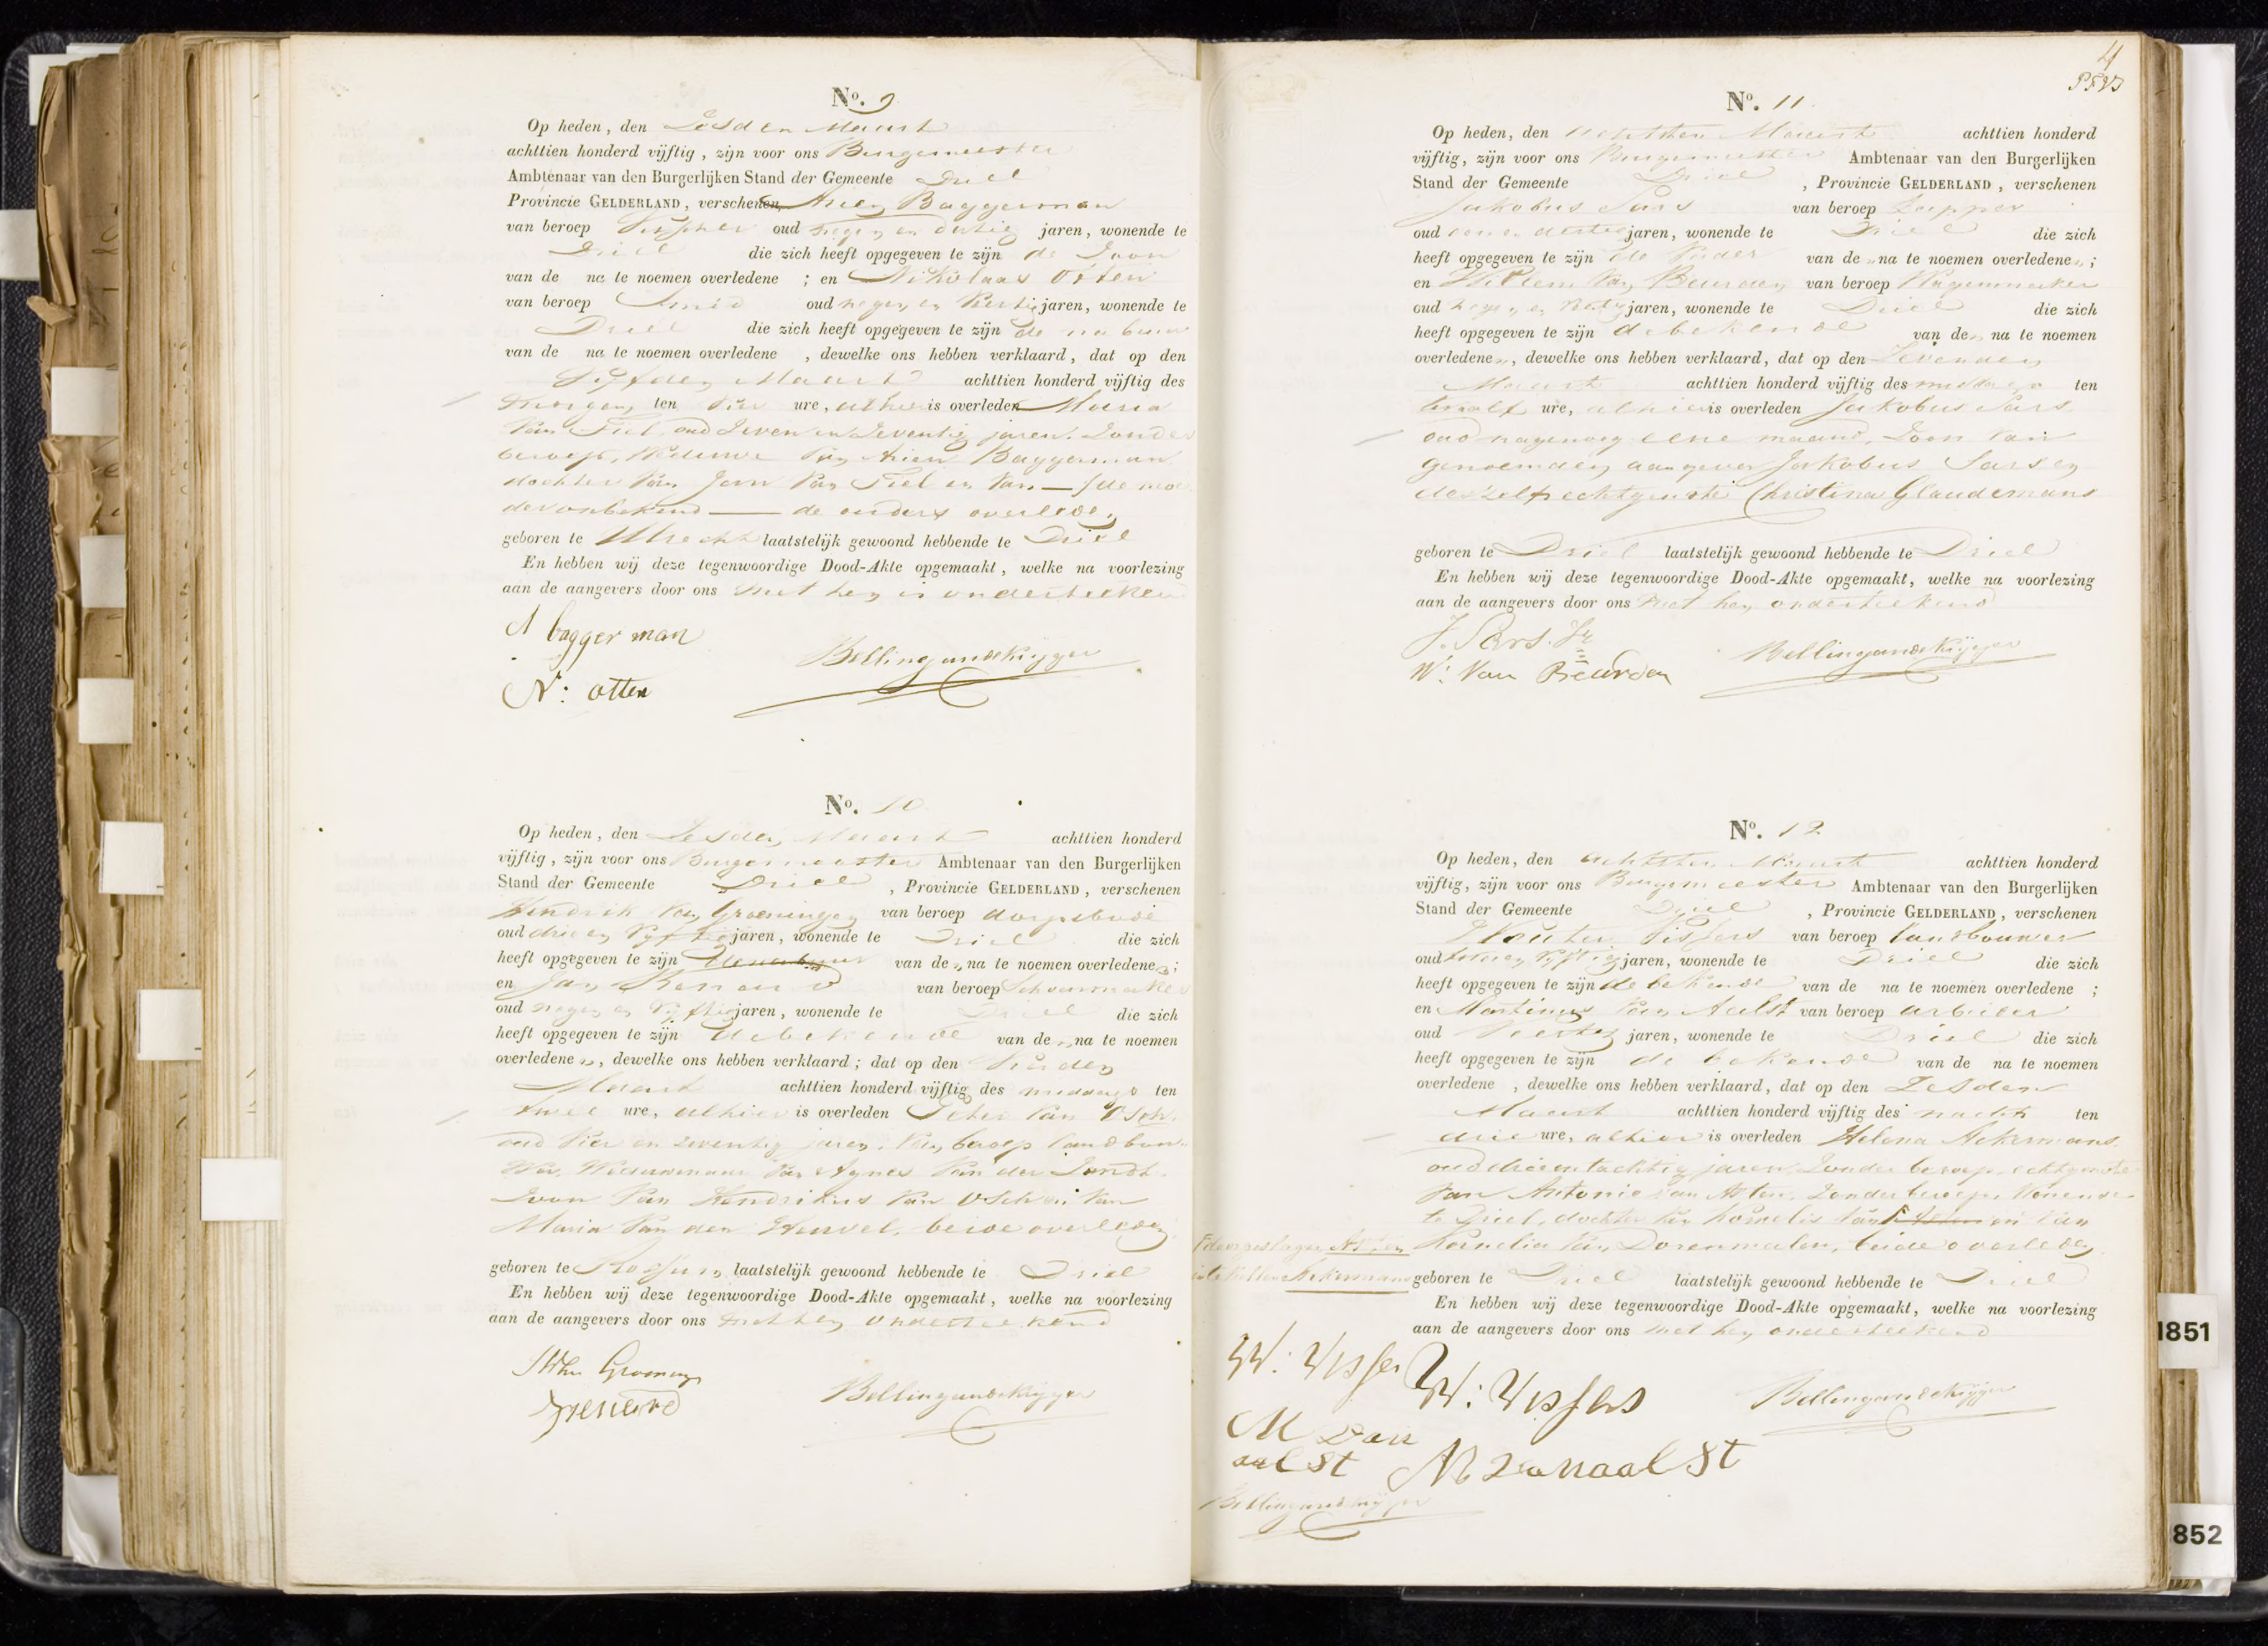 No. 9
Op heden, den Zesden Maart
achttien honderd vijftig, zijn voor ons Burgemeester
Ambtenaar van den Burgerlijken Stand der Gemeente Driel
Provincie GELDERLAND, verschenen Arien Baggerman
van beroep Visscher oud negen en dertig jaren, wonende te
Driel die zich heeft opgegeven te zijn de Zoon
van de na te noemen overledene ; en Nikolaas Otten
van beroep Smid oud negen en Veertig jaren, wonende te
Driel die zich heeft opgegeven te zijn de na buur
van de na te noemen overledene , dewelke ons hebben verklaard, dat op den
Vijfden Maart achttien honderd vijftig des
morgens ten Vier ure, alhier is overleden Maria
Van Tiel oud Zeven en Zeventig jaren. Zonder
beroep, Weduwe Van Arien Baggerman
dochter Van Jan Van Tiel en Van — de moe
der onbekend — de ouders overleden
geboren te Utrecht laatstelijk gewoond hebbende te Driel
En hebben wij deze tegenwoordige Dood-Akte opgemaakt, welke na voorlezing
aan de aangevers door ons met hen is onderteekend
A bagger man
Bellingandekrijger
N: otten
No. 10
Op heden, den Zesden Maart achttien honderd
vijftig, zijn voor ons Burgemeester Ambtenaar van den Burgerlijken
Stand der Gemeente Driel , Provincie GELDERLAND, verschenen
Hendrik Van Groeningen van beroep dorpsbode
oud drie en Vijftig jaren, wonende te Driel die zich
heeft opgegeven te zijn de nabuur van de na te noemen overledene ;
en Jan Renard van beroep Schoenmaker
oud negen en Vijftig jaren, wonende te Driel die zich
heeft opgegeven te zijn de bekende van de na te noemen
overledene , dewelke ons hebben verklaard; dat op den Vierden
Maart achttien honderd vijftig des middags ten
twee ure, alhier is overleden Peter Van Osch.
oud Vier en Zeventig jaren. Van beroep landbou
wer, Weduwenaar Van Agnes Van der Zandt.
Zoon Van Hendrikus Van Osch en Van
Maria Van den Heuvel, beide overleden
geboren te Rossum laatstelijk gewoond hebbende te Driel
En hebben wij deze tegenwoordige Dood-Akte opgemaakt, welke na voorlezing
aan de aangevers door ons met hen onderteekend
Bellingandekrijger
JRenard
4
No. 11
Op heden, den achtsten Maart achttien honderd
vijftig, zijn voor ons Burgemeester Ambtenaar van den Burgerlijken
Stand der Gemeente Driel , Provincie GELDERLAND, verschenen
Jakobus Sars van beroep Tapper
oud een en dertig jaren, wonende te Driel die zich
heeft opgegeven te zijn de Vader van de na te noemen overledene ;
en Willem Van Beurden van beroep Wagenmaker
oud negen en Veertig jaren, wonende te Driel die zich
heeft opgegeven te zijn de bekende van de na te noemen
overledene , dewelke ons hebben verklaard, dat op den Zevenden
Maart achttien honderd vijftig des middags ten
twaalf ure, alhier is overleden Jakobus Sars
oud nagenoeg eene maand, Zoon Van
genoemden aangever Jakobus Sars en
deszelfs echtgenoote Christina Glaudemans
geboren te Driel laatstelijk gewoond hebbende te Driel
En hebben wij deze tegenwoordige Dood-Akte opgemaakt, welke na voorlezing
aan de aangevers door ons met hen onderteekend
J. Sars. Jr
Bellingandekrijger
W: Van Beurden
No. 12
Op heden, den achtsten Maart achttien honderd
vijftig, zijn voor ons Burgemeester Ambtenaar van den Burgerlijken
Stand der Gemeente Driel , Provincie GELDERLAND, verschenen
Wouter Vissers van beroep landbouwer
oud twee en Vijftig jaren, wonende te Driel die zich
heeft opgegeven te zijn de bekende van de na te noemen overledene ;
en Martinus Van Aalst van beroep arbeider
oud Veertig jaren, wonende te Driel die zich
heeft opgegeven te zijn de bekende van de na te noemen
overledene , dewelke ons hebben verklaard, dat op den Zesden
Maart achttien honderd vijftig des nachts ten
drie ure, alhier is overleden Helena Ackermans,
oud drie en tachtig jaren, Zonder beroep, echtgenoote
Van Antonie van Aten, Zonder beroep, Wonende
te Driel, dochter Van Kornelis Van en Van
Kornelia Van Dorenmalen, beide overleden
doorgeslagen
Ackermans
geboren te Driel laatstelijk gewoond hebbende te Driel
En hebben wij deze tegenwoordige Dood-Akte opgemaakt, welke na voorlezing
aan de aangevers door ons met hen onderteekend
W: Vissers
W: Vissers
Bellingandekrijger
M van
aalst
M van aalst
Bellingandekrijger
1851
852